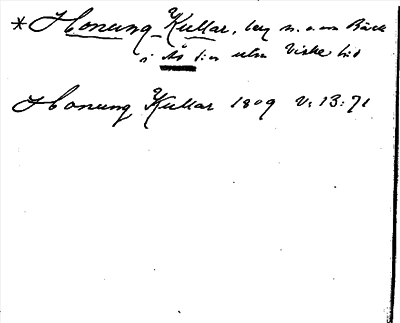 * Honung-Kullar, bey n. om Bäck
i Ås s:n utm Viske hd
Honung Kullar 1809 V: 13:71